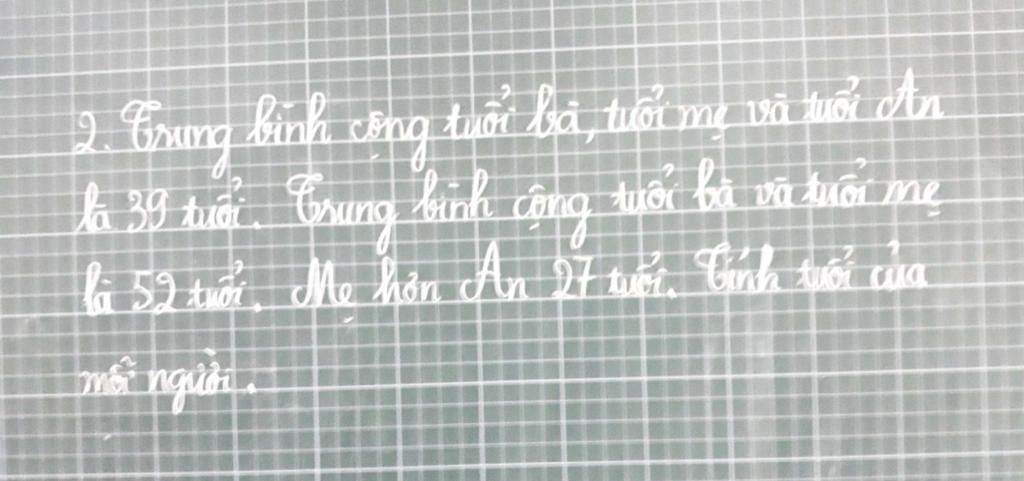 2. Trung bình cộng tuổi bà, tuổi mẹ và tuổi An
là 39 tuổi. Trung bình cộng tuổi bà và tuổi mẹ
là 52 tuổi. Mẹ hơn An 27 tuổi. Tính tuổi của
mỗi người.